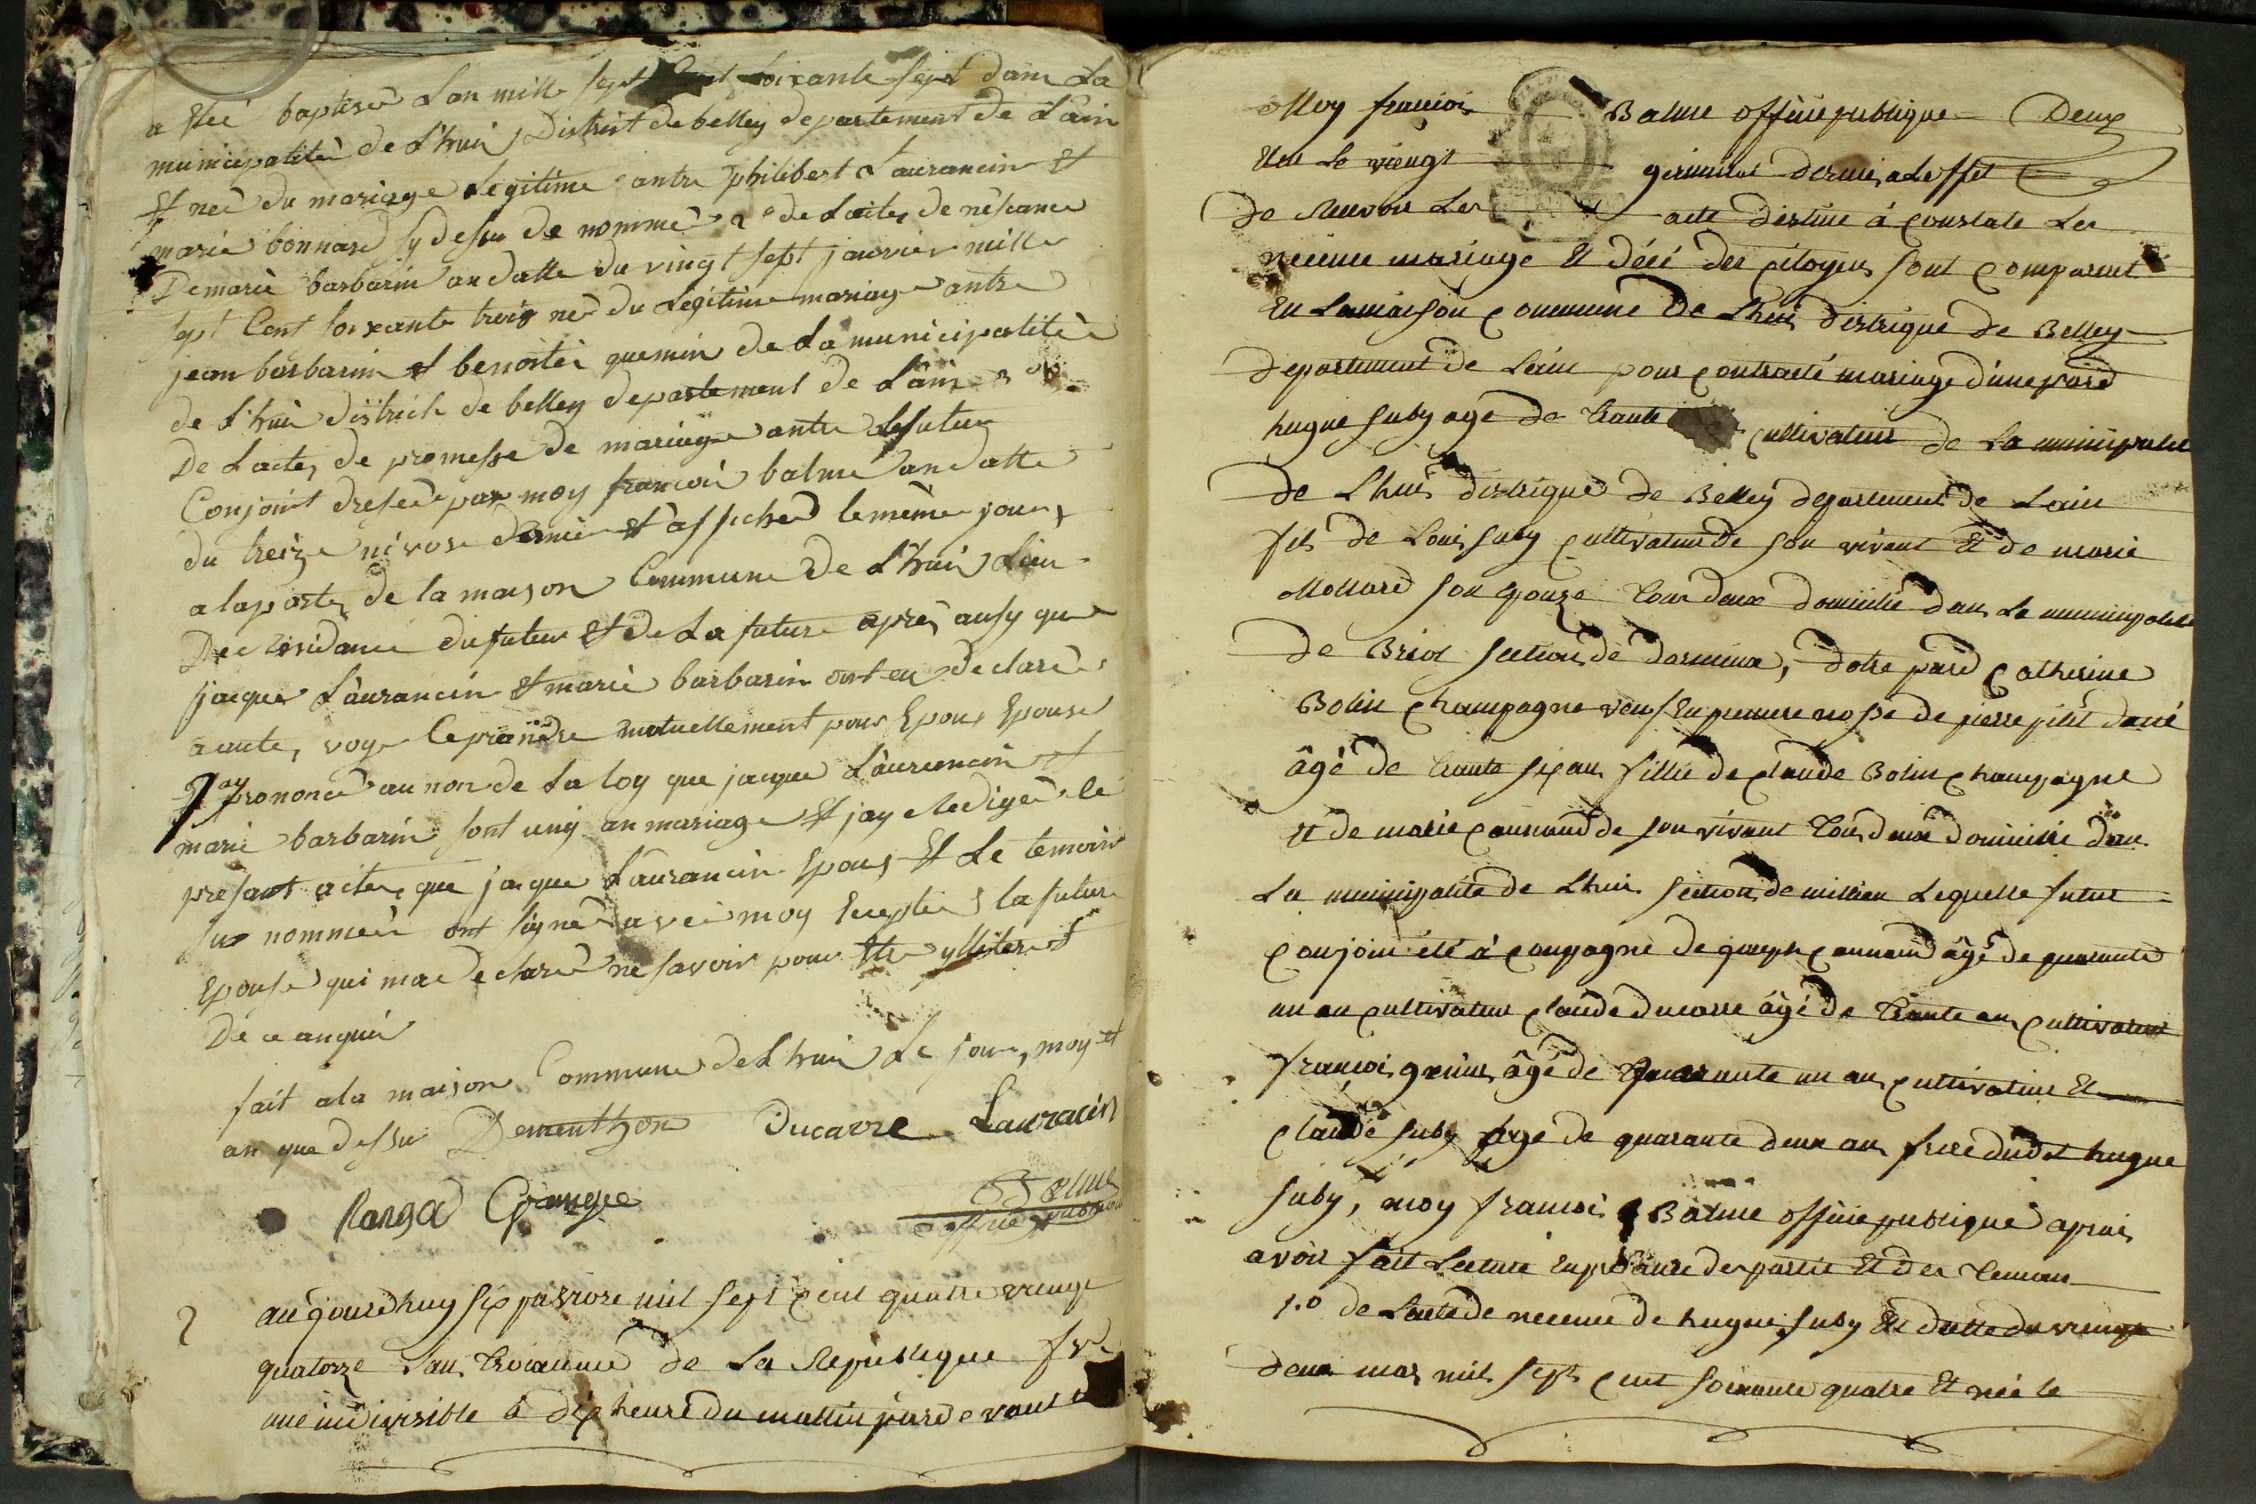 a Eteé baptiseé Lan mille sept Cent Soixante sept dans La
municipalité de Lhuis District de belley departement de Lâin
Et neé du mariage Legitime antre philibert Laurancin Et
marie bonnard sy dessu de nommé 2° de Lacte de nesance
De marie barbarin an datte du vingt sept janvier mille
sept Cent soixante trois neé du Legitime mariage antre
jean barbarin et benoite quemin de La municipalité
de Lhuis district de belley departement de Lâin 3°
De Lacte de promesse de mariage antre Le future
Conjoint dreseé par moy francois balme an datte
du treize nivose dernier Et affichéd le même jour
a la porte de la maison Commune de Lhuis Lieu
De residance du futur Et de La future apres ausy que
jacque Laurancin Et marie barbarin ont eu declaré
a aute voye Ce prandre mutuellement pour Epoux Epouse
jay prononcé au nom de La loy que jacque Laurancin Et
marie barbarin sont uny an mariage Et jay redigé le
presant acte que jacque Laurancin Epoux Et Le temoins
sus nommeé ont signé avec moy Exceptée la future
Epouse qui ma declaré ne savoir pour Etre ylliteré
De ce anquis
fait a la maison Commune de Lhuis Le jour, moy et
an que dessu Dementhon Ducarre Lauracin
Rangod Grangee
Balme
officié publique
aujourdhuy six plusviose mil sept cent quatre vingt
quatorze Lan troixiemme de La Republique fr
une indivisible a dix heure du mattin par devant
Moy francois Balme officié publique Deux
Elu Le viengt germinal dernie a Leffet
de Recevoir Les acte destine à constate Les
necence mariage Et décé des citoyens sont comparent
En La maison commune De Lhuis distrique de Belley
departement de Lain pour contracté mariage d'une pard
hugue suby age de trante cultivateur de La municipalité
de Lhuis distrique de Belley departement de Lain
fils de Louis suby cultivateur de son vivant Et de marie
Mollard son Epouze tous deux domicilie dans La municipalité
de Briot section de dornieux, dotre pard Catherine
Bolin Champagne veuf En premiere nosse de pierre pilit
âgé de trante six ans fillie de Claude Bolin Champagne
Et de marie Connand de son vivant tous deux domicilié dans
La municipalité de Lhuis section de millieu Lequelle futur
Conjoin été à compagne de joseph Connand âgé de quarante
un an cultivateur Claude Ducarre âgé de trante an cultivateur
francois grains âgé de quarante un an cultivateur Et
Claude suby âge de quarante deux ans frere dudit hugue
suby, moy francois Balme officié publique aprais
avoir fait Lecture En presance des partie Et des temoins
1.o de Lacte de necence de hugue suby En datte du viengt
deux mars mil sept cent soixante quatre Et née le